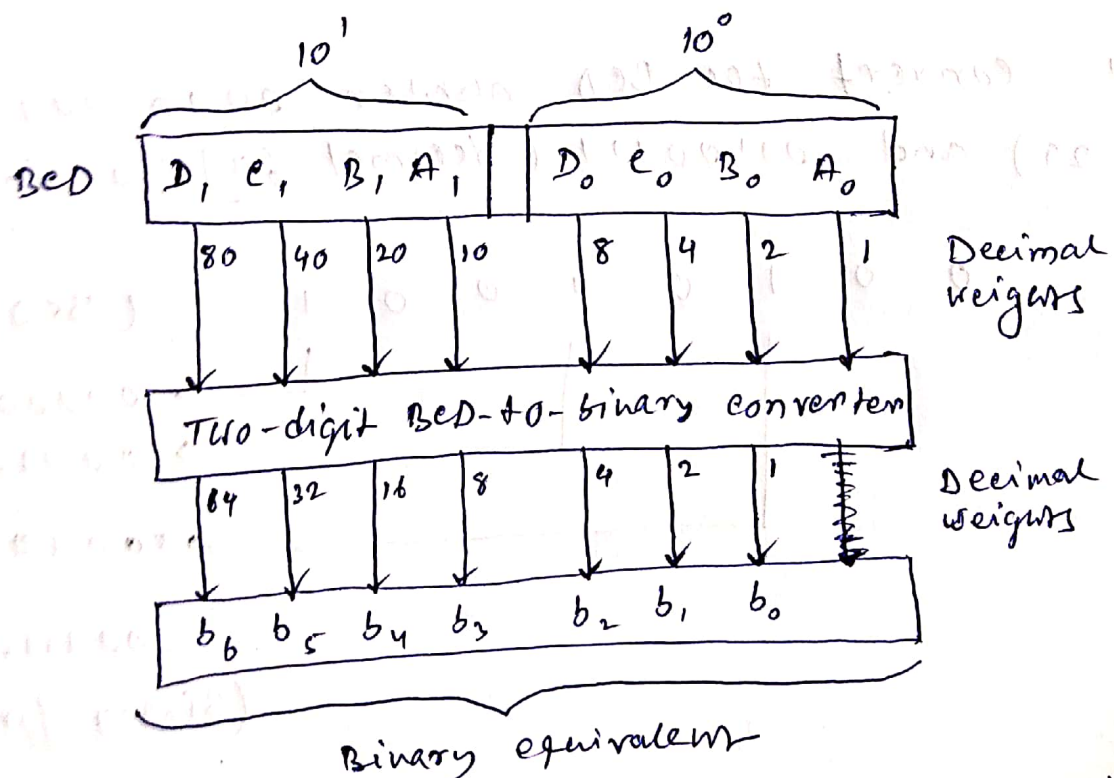 10¹ 10⁰
BCD D₁ C₁ B₁ A₁ D₀ C₀ B₀ A₀
80 40 20 10 8 4 2 1 Decimal
weights
Two-digit BCD-to-binary converter
64 32 16 8 4 2 1 Decimal
weights
b₆ b₅ b₄ b₃ b₂ b₁ b₀
Binary equivalent